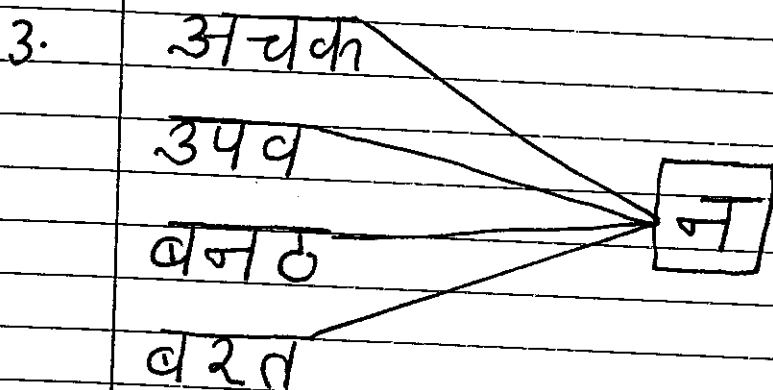 3. अचक
उपव
न
बनठ
बरत